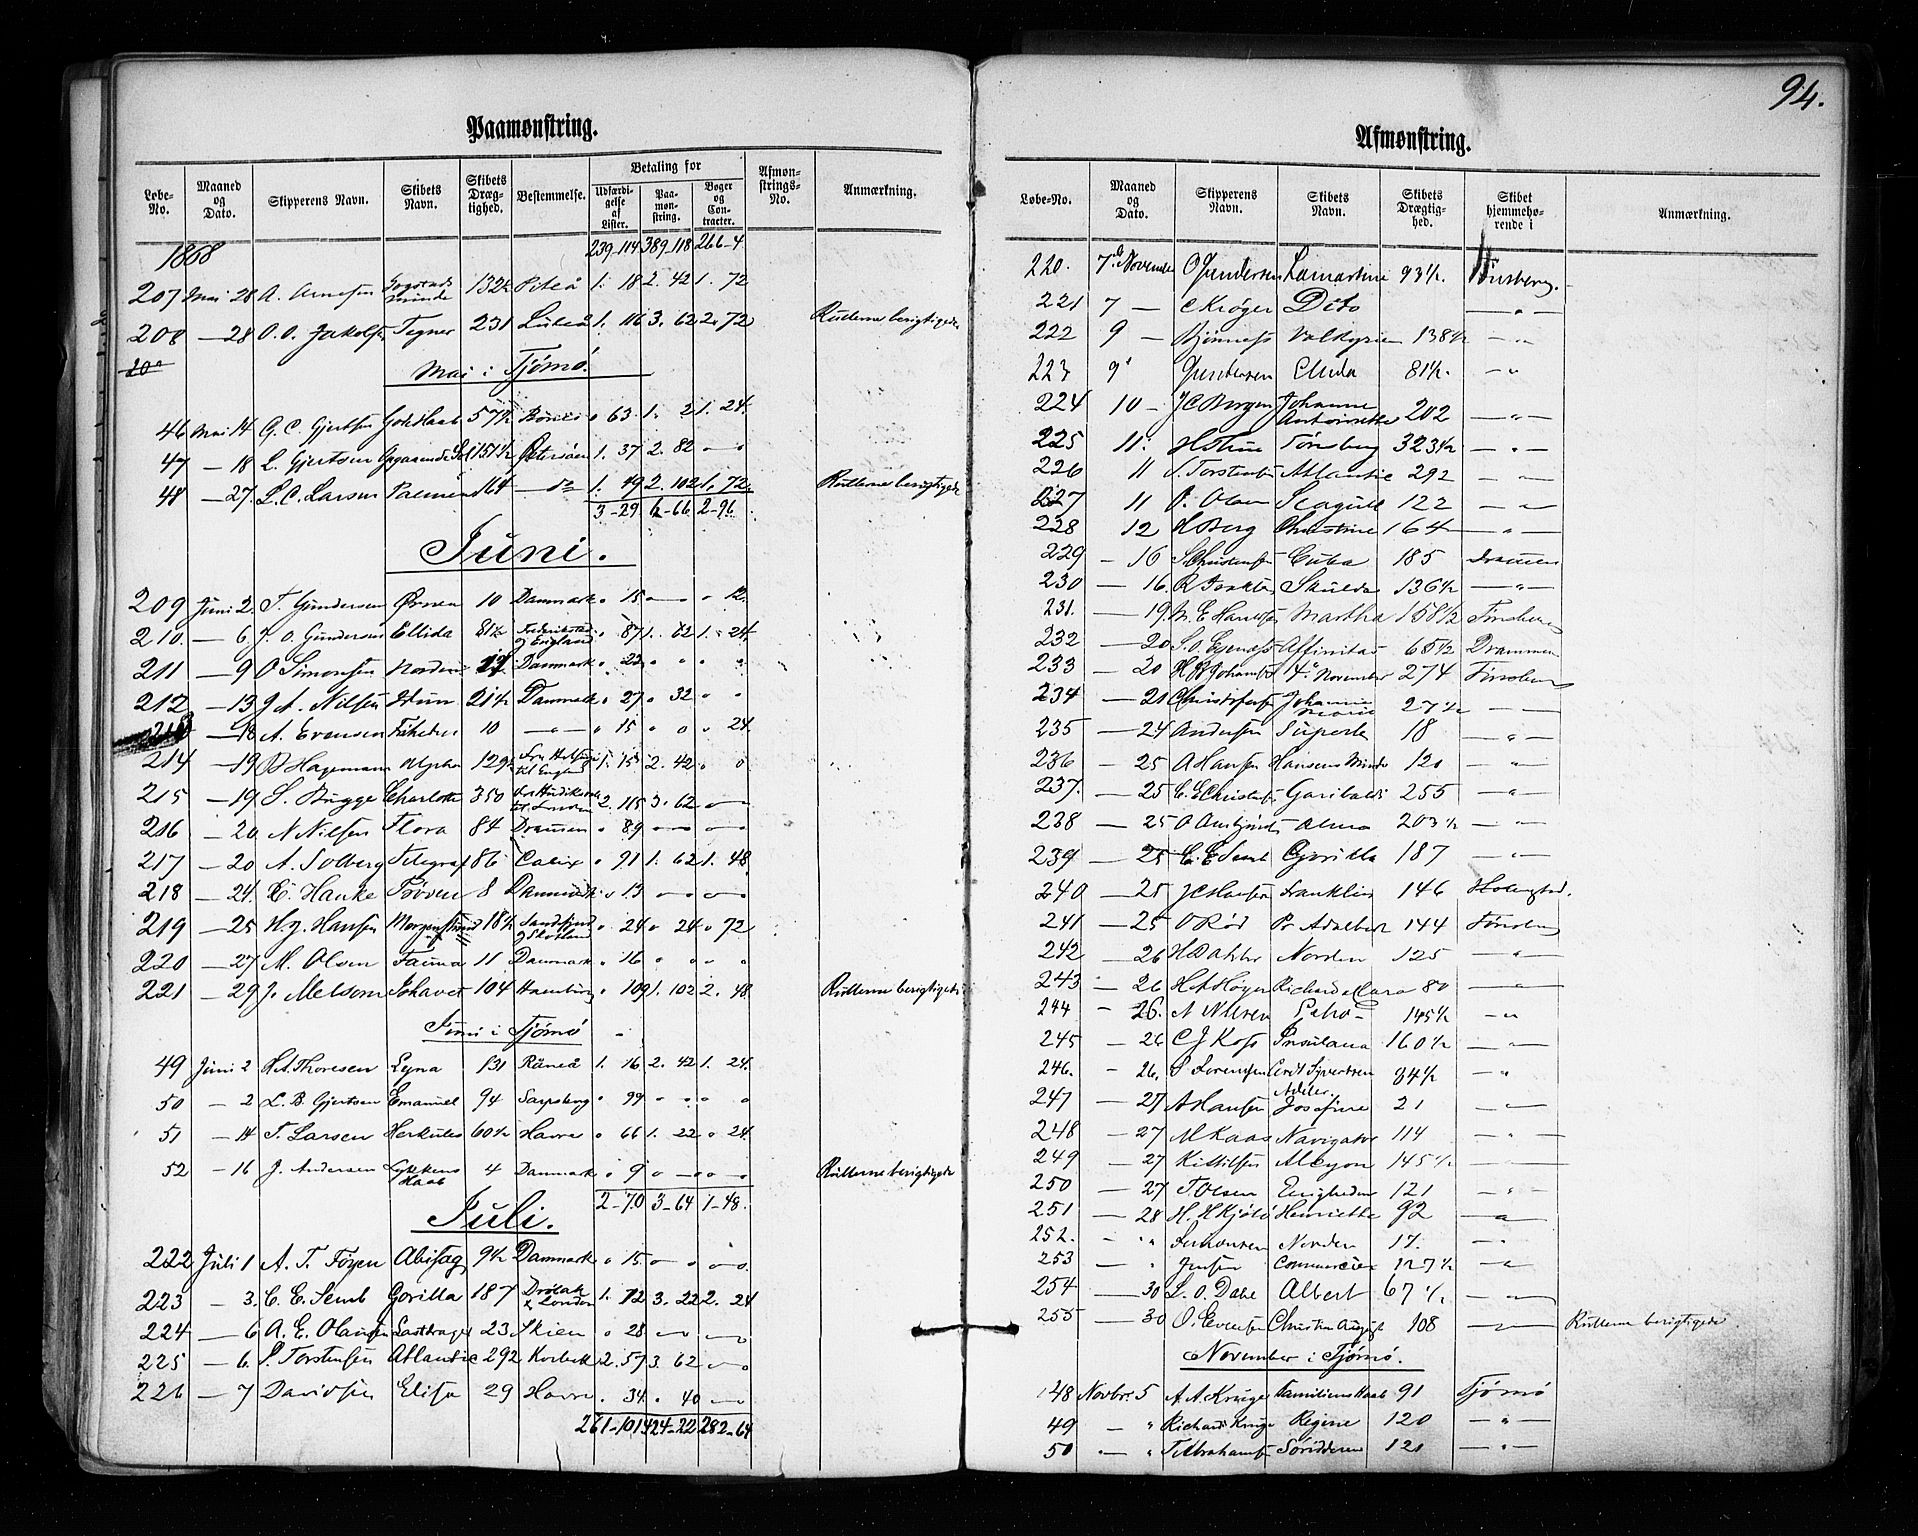 94.
Paamønstring.
Løbe-No. Maaned og Dato. Skipperens Navn. Skibets Navn. Skibets Dræg-tighed. Bestemmelse. Betaling for Udfærdi-gelse af Lister. Paa-møn-string. Bøger og Con-tracter. Afmøn-strings-No. Anmærkning.
1868 239-114 389-118 266-4
207 Mai 28 A. Arnesen minde 132½ Piteå 1. 18 2. 42 1. 72
208 — 28 O. O. Jakobsen Tegner 231 Luleå 1. 116 3. 62 2. 72 Rullerne berigtigede
Mai i Tjømø.
46 Mai 14 G. C. Gjertsen Godt Haab 57½ „ 63 1. 2 1. 24
47 — 18 L. Gjertsen 151½ 1. 37 2. 82 — „
48 — 27. L. C. Larsen 164 — do 1. 49 2. 102 1. 72. Rullerne berigtigede
3-29 6-66 2-96
Juni.
209 Juni 2. T. Gundersen Ørnen 10 Danmark „ 15 — „ „ 12.
210. — 6. J. O. Gundersen Ellida 81½ Frederikstad og England „ 87 1. 62 1. 24
211 — 9 O Simonsen Norden 17 Danmark „ 23 „ „ „ „
212 — 13 J A. Nilsen 21½ Danmark „ 27 „ 32 „ „
213 — 18 A. Evensen 10 — „ — „ 15 „ „ „ 24
214 — 19 B Hagemann Alpha 129½ til England 1. 15 2. 42 „ „
215 — 19 S. Bugge Charlotte 350 2. 115 3. 62 „ —
216 — 20 N Nilsen Flora 84 Dramen „ 89 — „ — „
217 — 20 A. Solberg Telegraf 86 Calix „ 91 1. 62 1. 48
218 — 24. C. Hanke 8 Danmark „ 13 — „ — „
219 — 25 H. J. Hansen 18½ Sandefjord og Skotland „ 24 „ 24 „ 72
220 — 27 M. Olsen Fauna 11 Danmark „ 16 „ „ „ „
221 — 29 J. Melsom 104 Hamburg „ 109 1. 102 2. 48 Rullerne berigtigede
Juni i Tjømø
49 Juni 2 H. A. Thoresen Leyna 131 Råneå 1. 16 2. 42 1. 24.
50 — 2 L. B. Gjertsen Emanuel 94 Sarpsborg „ 99 „ „ „ „
51 — 14 T. Larsen Herkules 60½ Havre „ 66 1. 22 „ 24
52 — 16 J. Andersen Lykkens Haab 4 Danmark „ 9 „ — „ — „ Rullerne berigtigede
2-70 3-64 1-48.
Juli.
222 Juli 1 A. T. Føyen Abisag 9½ Danmark „ 15 „ — „
223 — 3. C. E. Semb Gorilla 187 Drøbak & London 1. 12 3. 22 2. 24
224 — 6 A. E. Olausen Lastdrager 23 Skien „ 28 — „ — „
225 — 6. S. Torstensen Atlantic 292 2. 57 3. 62 — „
226 — 7 Davidsen Elise 29 Havre . 34 . 40 — „
261-101 424-22 282-64
Afmønstring.
Løbe-No. Maaned og Dato. Skipperens Navn. Skibets Navn. Skibets Drægtig-hed. Skibet hjemmehø-rende i Anmærkning.
220. 7 November O Gundersen Lamartine 93½. Tønsberg.
221 7 — C Krøger Dito — „ —
222 9 — Bjønness Valkyrien 138½ — „
223 9 Gundersen Elida 81½. — „
224 10 — J C Bergen Johanne Antoinette 202 — „ —
225 11. Tønsberg 323½ — „ —
226 11 S. Torstensen Atlantic 292 — „ —
227 11 O. Olsen Seagull 122 — „ —
228 12 H Berg Christine 164 — „ —
229 — 16 S Christensen Cuba 185 Dramen
230 — 16. Skulda 136½ — „ —
231. — 19. M. E. Hansen Martha 158½ Tønsberg
232 — 20 S. O. Affinitas 60½ Drammen
233 — 20 4. November 274 Tønsberg
234 — 21 Christofersen Johanne Marie 27½ — „ —
235 — 24 Andersen Superb 18 — „ —
236 — 25 A Hansen Hansens Minde 120 — „ —
237. — 25 C. E Christensen Garibaldi 255 — „ —
238 — 25 O Alma 203½ — „ —
239 — 25 C. E Semb Gorilla 187 — „ —
240 — 25 J C Hansen Franklin 146 Holmestrand.
241 — 25 O Rød Pr Adalbert 144 Tønsberg
242 — 26 Norden 125 — „ —
243 — 26 H A Høyer Richard & Clara 80 — „ —
244 — 26. A Nilsen Echo 145½ — „
245 — 26 C J Koss Insulana 160½ — „ —
246. — 26. S Sørensen Cort Syvertsen Adeler 34½ — „
247 — 27 A Hansen Josefine 21 — „ —
248 — 27 M Kaas Navigator 114 — „ —
249 — 27 Kittilsen Alcyon 145½ — „ —
250 — 27 T Olsen Enigheden 121 — „ —
251 — 28 Henriette 92 — „ —
252. — „ Norden 17. — „
253 — „ Jensen Commercien 127½ — „ —
254 — 30 L. O. Dahl Albert 67½ — „ —
255 — 30 O. Evensen Christian August 108 — „ — Rullerne berigtigede.
November i Tjømø.
48 Novbr. 5 A. A. Kruge Familiens Haab 91 Tjømø
49 — „ Richard Kruge Regine 120 — „ —
50 — „ T Abrahamsen 121 — „ —